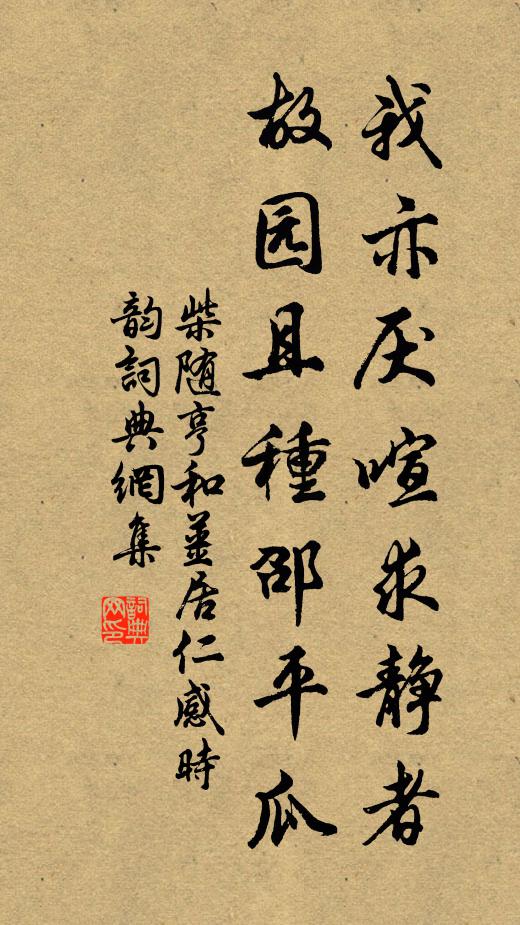 我亦厌喧求静者
故园且種邵平瓜
柴随亨和姜居仁感時
韵詞典網集
詞典
网印